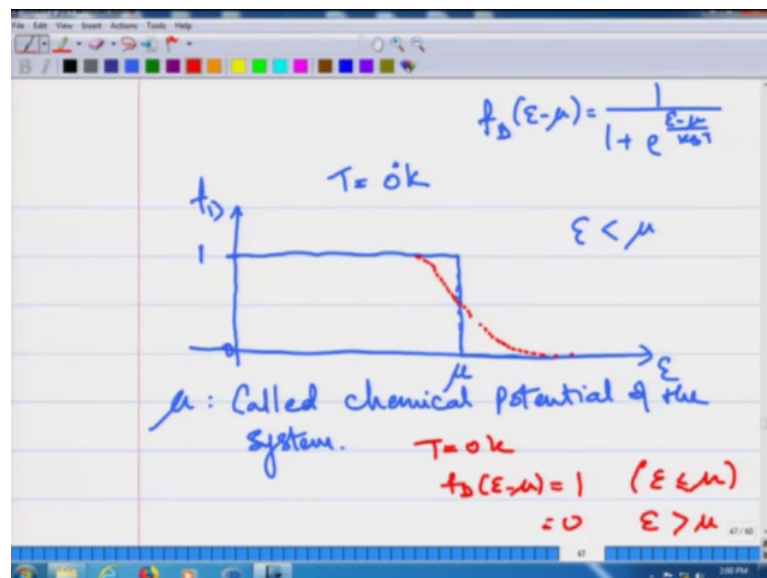 File Edit View Insert Actions Tools Help
B I
f_D(ε-μ) = 1 / (1 + e^{(ε-μ)/(k_BT)})
T = 0k
f_D
ε < μ
1
0
μ
ε
μ : Called chemical potential of the
system.
T = 0k
f_D(ε-μ) = 1 (ε ≤ μ)
= 0 ε > μ
47 / 60
47
2:00 PM